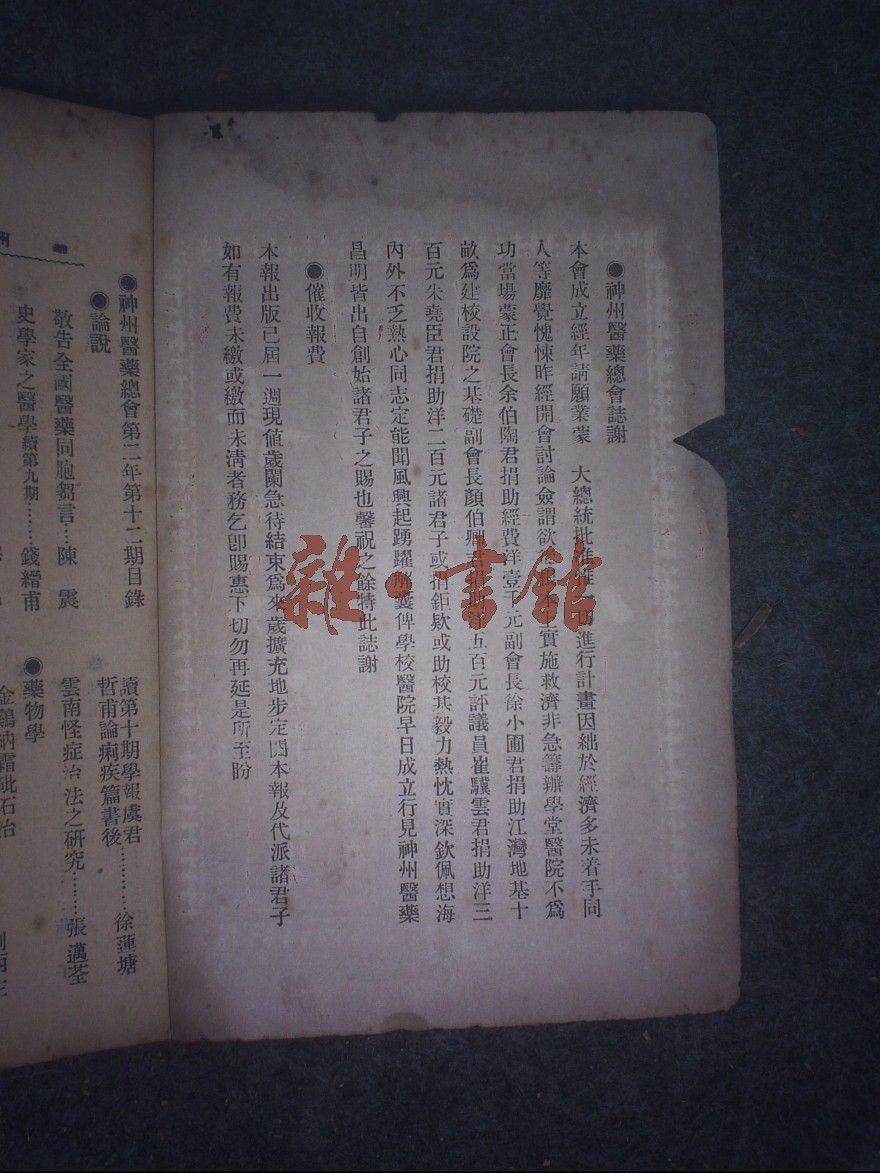 ●神州醫藥總會誌謝
本會成立經年請願業蒙　大總統批准進行計畫因絀於經濟多未着手同
人等靡覺愧悚昨經開會討論僉謂欲實施救濟非急籌辦學堂醫院不爲
功當場蒙正會長余伯陶君捐助經費洋壹千元副會長徐小圃君捐助江灣地基十
畝爲建校設院之基礎副會長顏伯卿君捐助洋五百元評議員崔驥雲君捐助洋三
百元朱堯臣君捐助洋二百元諸君子或捐鉅欵或助校基毅力熱忱實深欽佩想海
內外不乏熱心同志定能聞風興起踴躍解囊俾學校醫院早日成立行見神州醫藥
昌明皆出自創始諸君子之賜也馨祝之餘特此誌謝
●催收報費
本報出版已屆一週現値歲闌急待結束爲來歲擴充地步定閱本報及代派諸君子
如有報費未繳或繳而未淸者務乞卽賜惠下切勿再延是所至盼
●神州醫藥總會第二年第十二期目錄
●論說
敬告全國醫藥同胞芻言…陳　震
史學家之醫學續第九期………錢縉甫
讀第十期學報虞君
哲甫論痢疾篇書後…………徐蓮塘
雲南怪症治法之研究………張邁荃
●藥物學
雜·書館